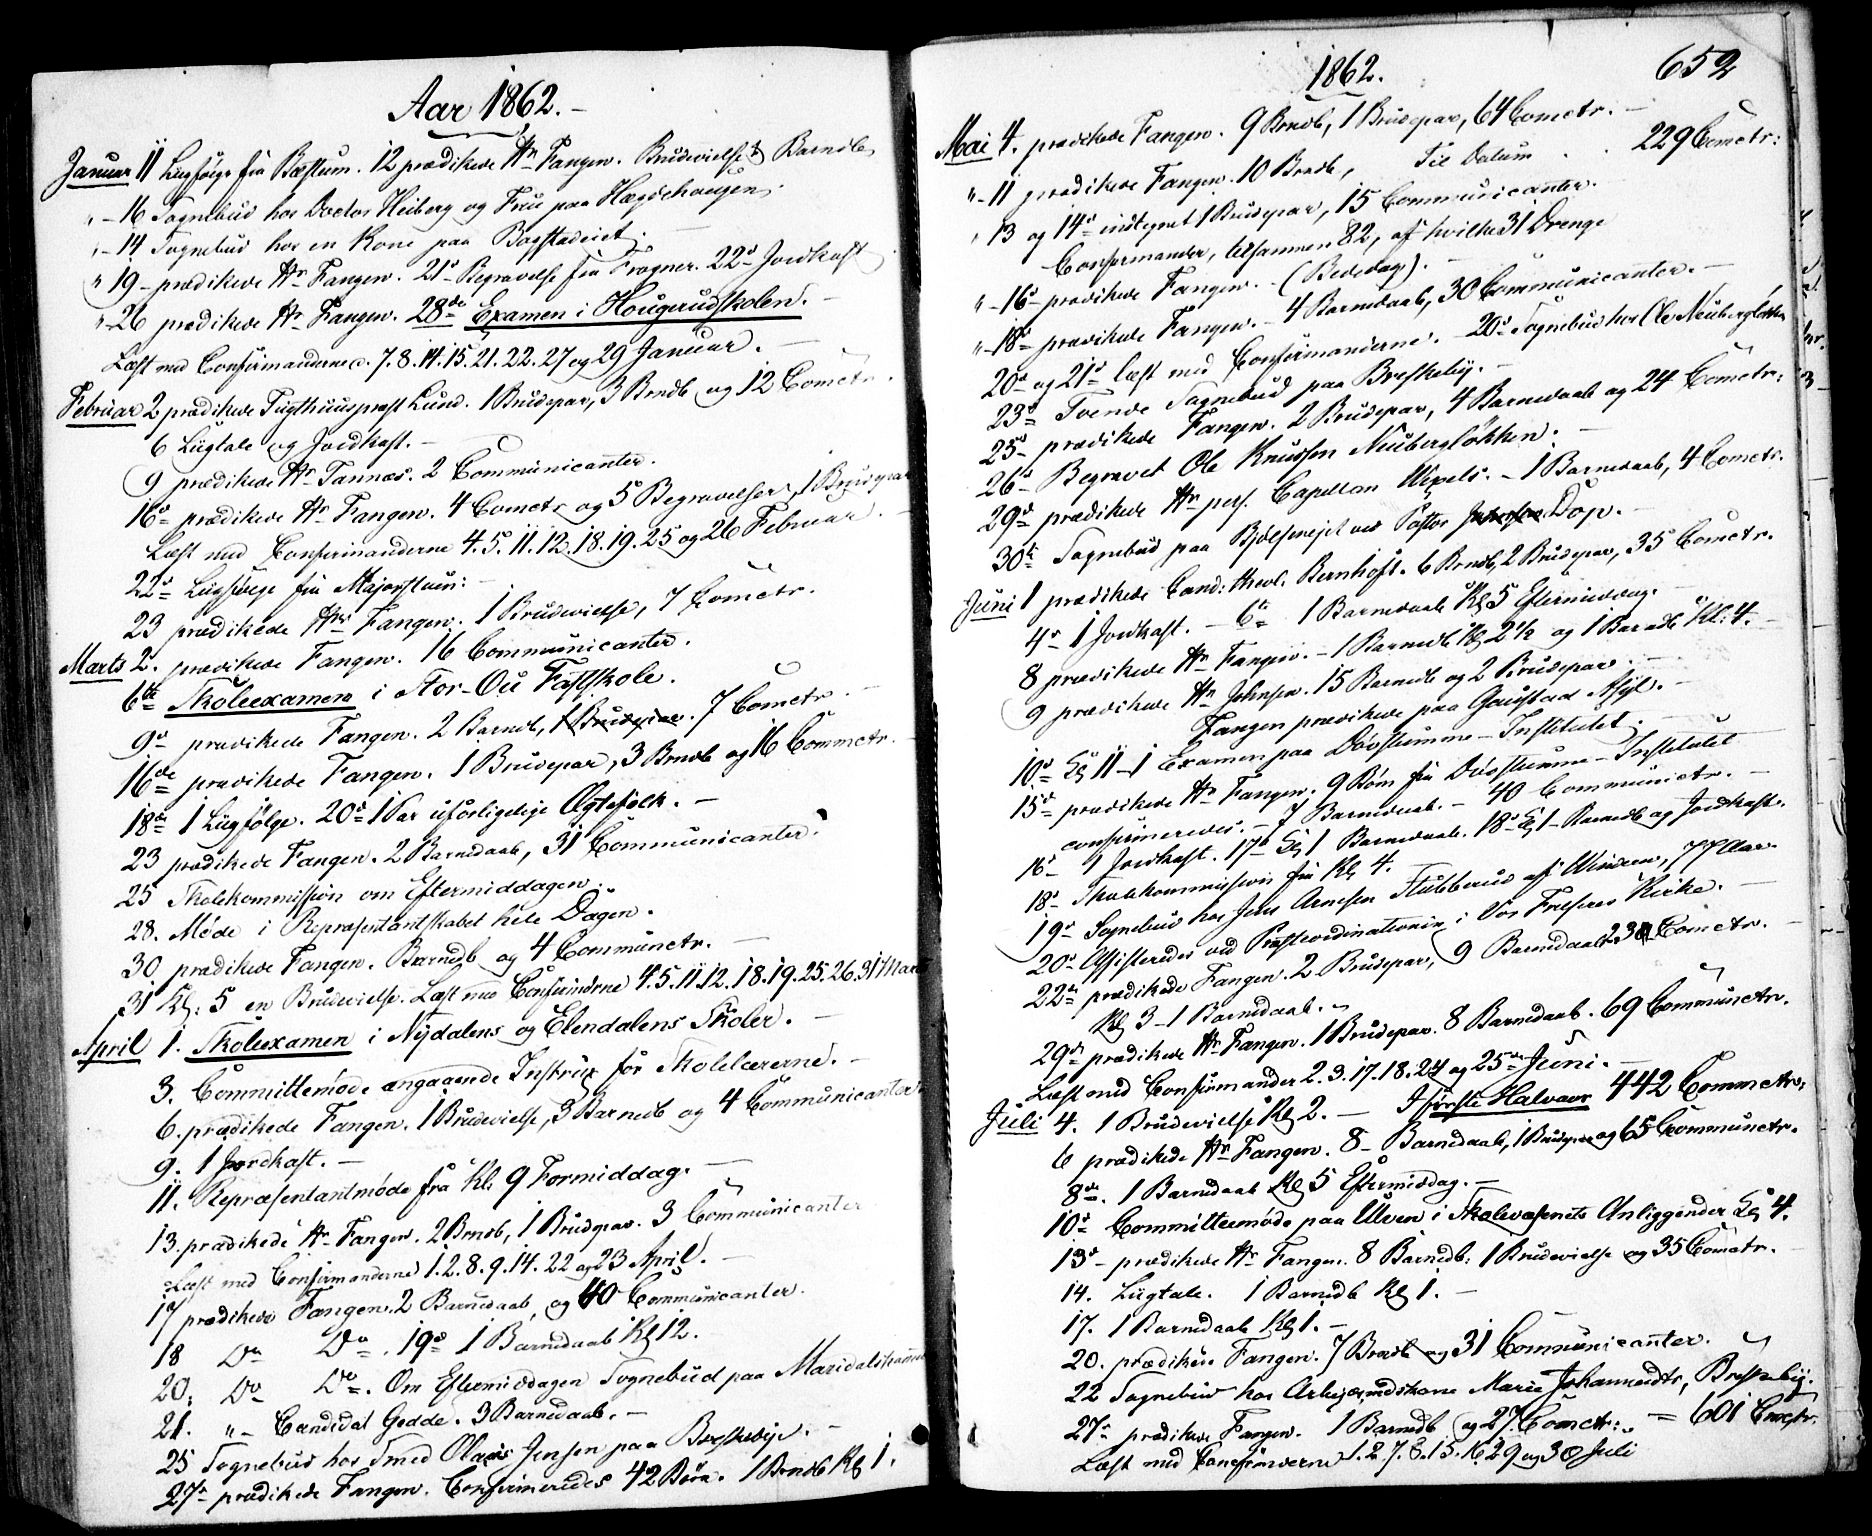 Aar 1862.-
Januar 11 Liigfølge fra Bæstum. 12 prædikede Hr Fangen. Brudevielse & Barndb
"-16 Sognebud hos Doctor Heiberg og Frue paa Hægdehaugen.
"-14 Sognebud hos en Kone paa Bogstadveiet.
"19- prædikede Hr Fangen. 21de Begravelse fra Frogner. 22de Jordkast
"-26 prædikede Hr Fangen. 28de Examen i Hougerudskolen.-
Læst med Confirmanderne d. 7.8.14.15.21.22.27 og 29 Januar.-
Februar 2 prædikede Tugthuuspræst Lund. 1 Brudepar, 3 Brndb og 12 Cometr.
6 Liigtale og Jordkast.-
9 prædikede Hr Tannæs. 2 Communicanter.
16de prædikede Hr Fangen. 4 Cometr og 5 Begravelser, 1 Brudepar
Læst med Confirmanderne 4.5.11.12.18.19.25 og 26 Februar.-
22de Liigfølge fra Majorstuen:-
23 prædikede Hr Fangen. 1 Brudevielse, 7 Cometr.
Marts 2. prædikede Fangen. 16 Communicanter.
6te Skoleexamen i Stor-Ou Fastskole.
9de prædikede Fangen. 2 Barndb, 1 Brudepar. 7 Cometr.-
16de prædikede Fangen. 1 Brudepar, 3 Brndb og 16 Commctr.-
18de 1 Liigfølge. 20de 1 Par uforligelige Ægtefolk.-
23 prædikede Fangen. 2 Barnedaab, 31 Communicanter.
25 Skolekommission om Eftermiddagen.
28. Møde i Repræsentantskabet hele Dagen.
30 prædikede Fangen. Barnedb og 4 Communctr.-
31 Kl. 5 en Brudevielse. Læst med Confirmdrne 4.5.11.12.18.19.25.26.31 Mar
April 1. Skoleexamen i Nydalens og Elendalens Skoler.-
3. Committemøde angaaende Instrux for Skolelærerne.-
6. prædikede Fangen. 1 Brudevielse, 3 Barnedb og 4 Communicanter
9. 1 Jordkast.-
11. Repræsentantmøde fra Kl. 9 Formiddag.-
13. prædikede Hr Fangen. 2 Brndb, 1 Brudepar. 3 Communicanter
Læst med Confirmanderne 1.2.8.9.14.22 og 23 April.-
17 prædikede Fangen. 2 Barnedaab, og 40 Communicanter.
18 Do Do. 19de 1 Barnedaab Kl 12.
20. Do Do. Om Eftermiddagen Sognebud paa Maridalshammer
21. "- Candidat Gedde. 3 Barnedaab.-
25 Sognebud hos Smed Olaus Jensen paa Briskebye.-
27de prædikede Fangen. Confirmeredes 42 Børn. 1 Brndb Kl 1.
1862. 652
Mai 4. prædikede Fangen. 9 Brndb, 1 Brudepar, 64 Cometr.-
"-11 prædikede Fangen. 10 Brndb, Til Datum .. 229 Cometr:
" 13 og 14de indtegnet 1 Brudepar, 15 Communicanter.
Confirmander, tilsammen 82, af hvilke 31 Drenge
"-16de prædikede Fangen.- (Bededag).-
"-18de prædikede Fangen.- 4 Barnedaab, 30 Communicanter.-
20de og 21de læst med Confirmanderne.- 20de Sognebud hos Ole Niuberg løkken
23de Tvende Sognebud paa Briskeby.-
25de prædikede Fangen. 2 Brudepar, 4 Barnedaab og 24 Cometr:
26de Begravet Ole Knudsen Niubergløkken.-
29de prædikede Hr pers. Capellan Wexels.- 1 Barnedaab, 4 Cometr.
30te Sognebud paa ved Pastor Dop.-
Juni 1 prædikede Cand: theol. Bernhoft. 6 Brndb, 2 Brudepar, 35 Cometr.
4de 1 Jordkast.- 6te 1 Barnedaab Kl 5 Eftermiddag.
8 prædikede Hr Fangen.- 1 Barnedb Kl 2½ og 1 Barndb Kl: 4.-
9 prædikede Hr Johnsen. 15 Barnedb og 2 Brudepar.-
Fangen prædikede paa Gaustad Asyl.-
10de Kl 11-1 Examen paa Døvstumme-Institutet.-
15de prædikede Hr Fangen. 9 Børn fra Døvstumme-Institutet
confirmeredes.- 7 Barnedaab.- 40 Communictr.-
16de 1 Jordkast. 17de Kl 1 Barnedaab. 18de Kl 1- Barnedb og Jordkast.
18de Skolekommission fra Kl 4.
19de Sognebud hos Jens Arnesen Stubberud af Winderen, 77 Aar.
20de Assisteredes ved Præsteordinationen i Vor Frelsers Kirke.-
22de prædikede Fangen. 2 Brudepar, 9 Barnedaab. 23 Cometr.
Kl 3-1 Barnedaab.-
29de prædikede Hr Fangen. 1 Brudepar. 8 Barnedaab. 69 Communctr.
Læst med Confirmander 2.3.17.18.24 og 25de Juni.-
Juli 4. 1 Brudevielse Kl 2.- I første Halvaar 442 Commctr.
6 prædikede Hr Fangen. 8- Barnedaab, 1 Brudepar og 65 Communctr.
8de. 1 Barnedaab Kl 5 Eftermiddag.-
10de Committeemøde paa Ulven i Skolevæsenets Anliggender Kl 4.
13de- prædikede Hr Fangen. 8 Barnedb: 1 Brudevielse og 35 Cometr.-
14. Liigtale. 1 Barnedb Kl 1.-
17. 1 Barnedaab Kl 1.-
20. prædikede Fangen. 7 Brndb og 31 Communicanter.
22 Sognebud hos Arbejdsmdskone Marie Johannesdtr, Briskeby.
27de prædikede Fangen. 1 Barnedb og 27 Cometr:- = 601 Cmctr.
Læst med Confirmderne 1.2.7.8.15.16.29 og 30 Juli